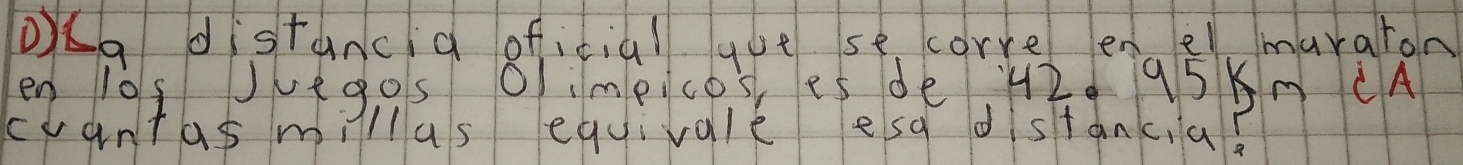 D) La distancia oficial que se corre en el maraton
en los Juegos Olimpicos, es de 42.95 Km ¿A
cuantas millas equivale esa distancia?